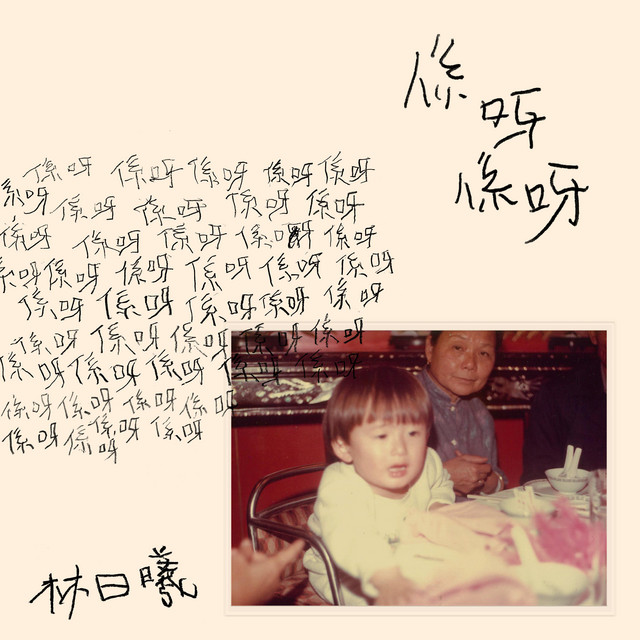 係呀
係呀
係呀 係呀 係呀 係呀 係呀
係呀 係呀 係呀 係呀 係呀
係呀 係呀 係呀 係呀 係呀
係呀 係呀 係呀 係呀 係呀 係呀
係呀 係呀 係呀 係呀 係呀
係呀 係呀 係呀 係呀 係呀
係呀 係呀 係呀 係呀 係呀
係呀 係呀 係呀 係呀
係呀 係呀 係呀 係呀
林日曦